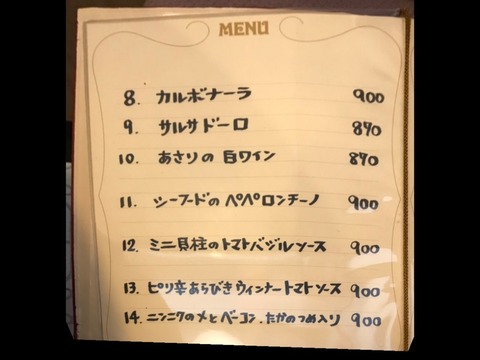 MENU
8. カルボナーラ 900
9. サルサドーロ 870
10. あさりの白ワイン 870
11. シーフードのペペロンチーノ 900
12. ミニ貝柱のトマトバジルソース 900
13. ピリ辛あらびきウィンナートマトソース 900
14. ニンニクのメとベーコン.たかのつめ入り 900